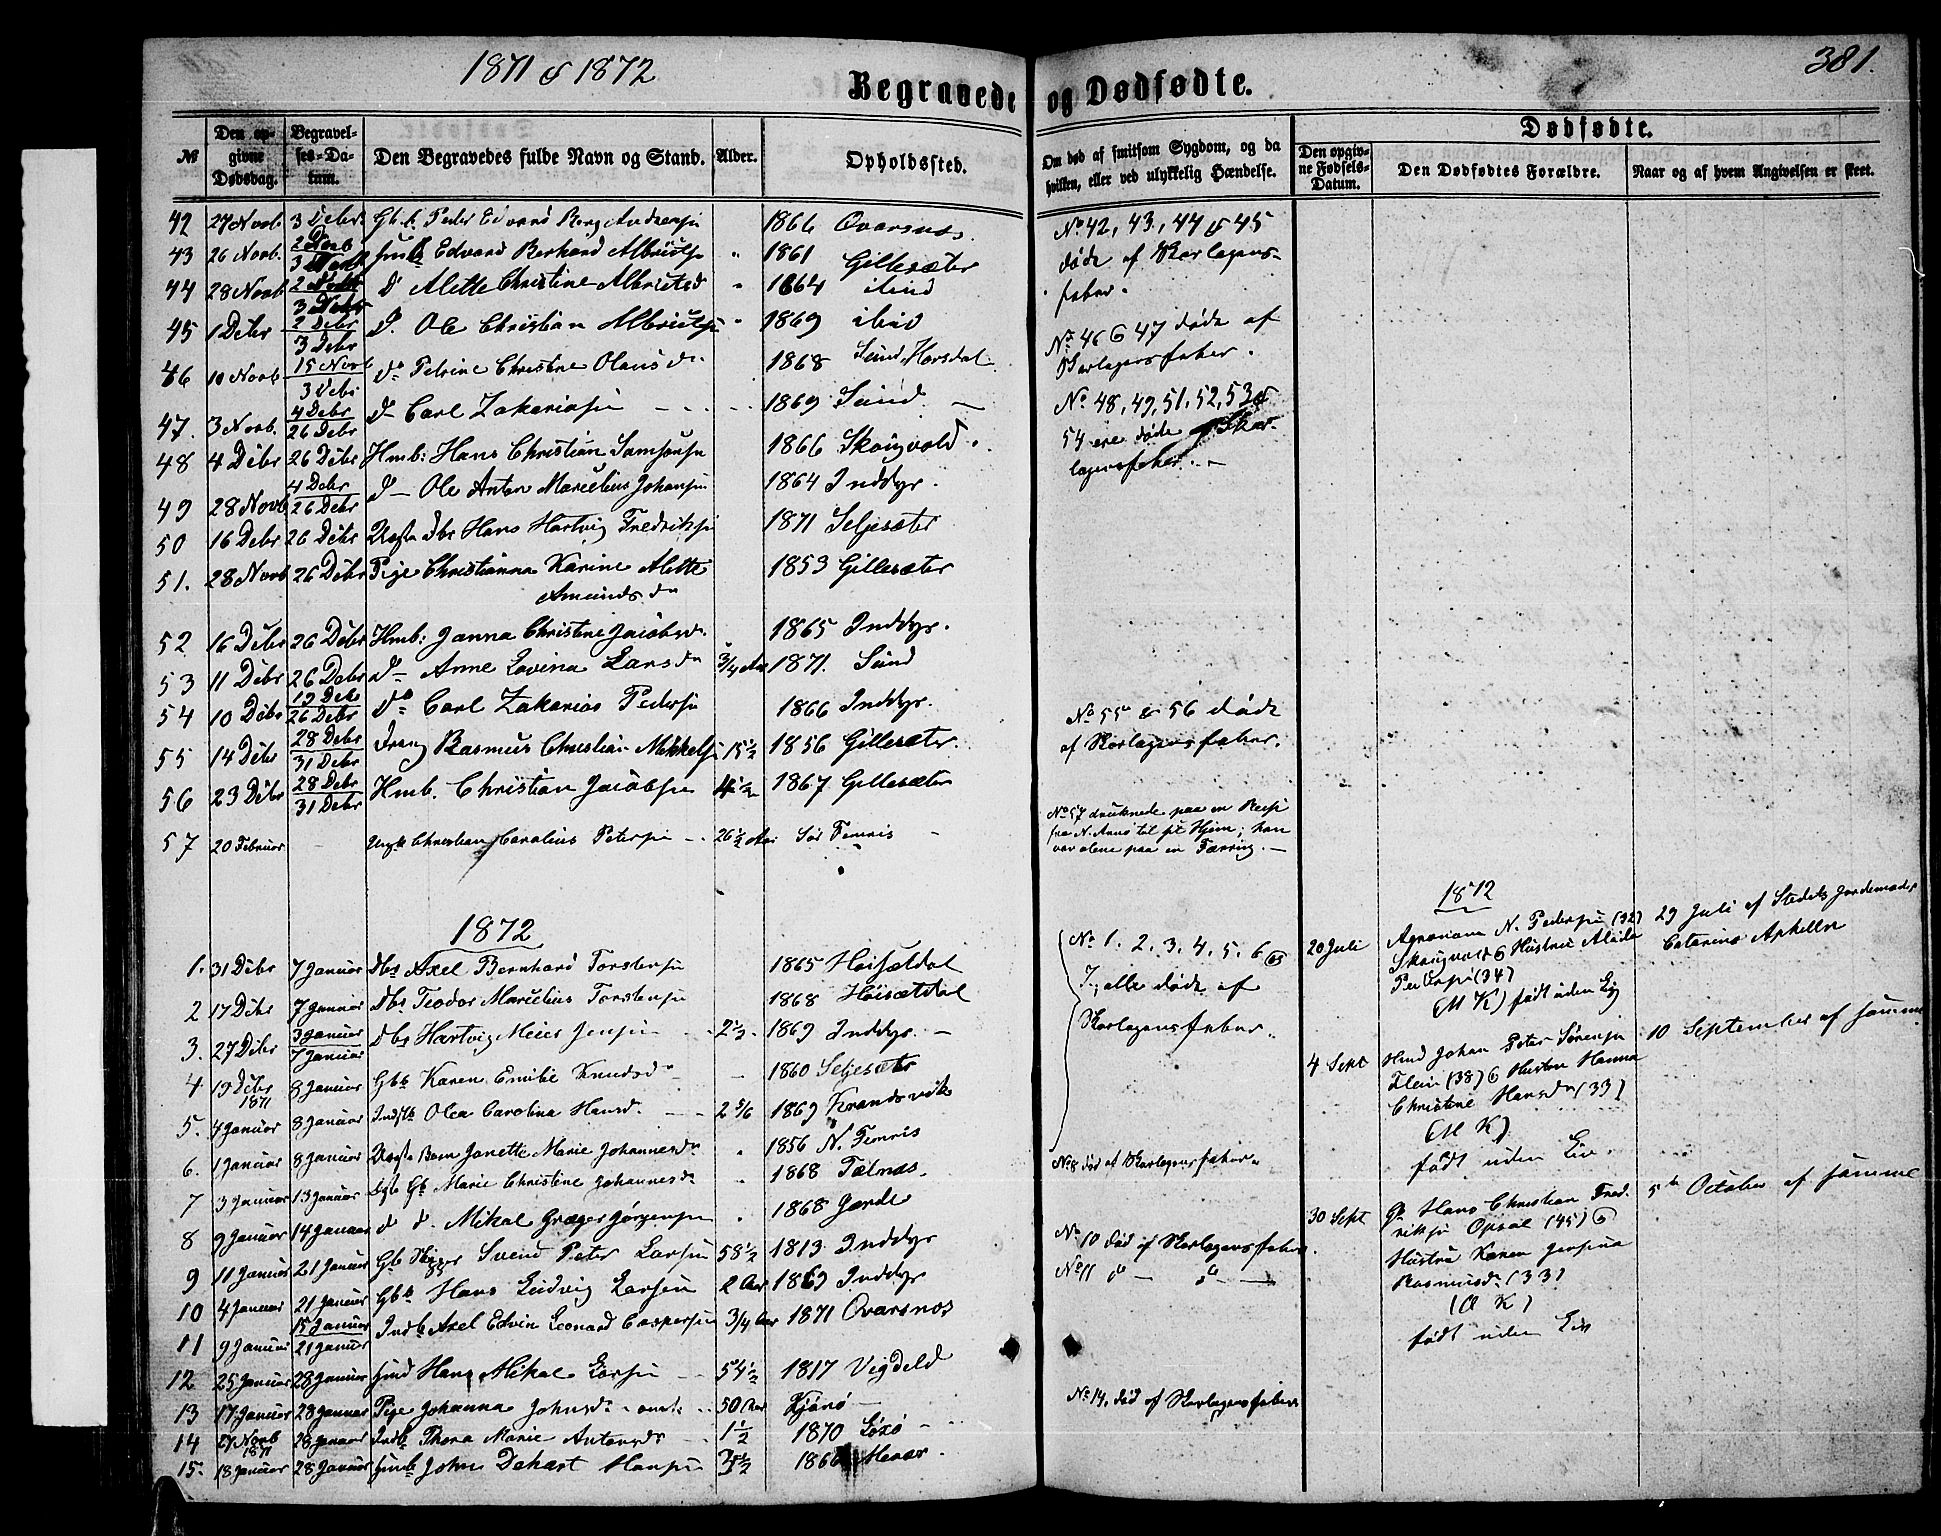 1871 & 1872
381.
Begravede og Dødfødte.
Dødfødte.
№
Den opgivne Dødsdag.
Begravelses-Datum.
Den Begravedes fulde Navn og Stand.
Alder.
Opholdssted.
Om død af smitsom Sygdom, og da hvilken, eller ved ulykkelig Hændelse.
Den opgivne Fødsels-Datum.
Den Dødfødtes Forældre.
Naar og af hvem Angivelsen er skeet.
42 27 Novb 3 Debr Gb. Peder Edvard Berg Andreas 1866 Qvarsnæs
43 26 Novb. 3 Edvard Berhard Albrigts " 1861 Gillesæter
44 28 Novb 3 Debr D Alette Christine Albrictsd " 1864 ibid
45 1 Debr 2 Debr 3 Debr D. Ole Christian " 1869 ibid
46 10 Novb 15 Novb 3 Debr Do Petrine Christine Olausdr 1868 Sund, Horsdal
47. 3 Novb. 4 Debr 26 Debr D Carl Zakariasen 1869 Sund
48 4 Debr 26 Debr Hmb: Hans Christian 1866 Skougvold
49 28 Novb 4 Debr 26 Debr D Ole Anton Marcelius Johansen 1864 Inddyr.
50 16 Debr 26 Debr Dbr Hans Hartvig Fredriksen 1871 Seljesæter
51. 28 Novb 26 Debr Pige Christianna Karine Alette 1853 Gillesæter
Amundsdr
52 16 Debr 26 Debr Hmb: Janna Christine Jacobsdr. 1865 Inddyr.
53 11 Debr 26 Debr D Anne Lovina Larsdr 3/4 Aar 1871. Sund
54 10 Debr 19 Debr 26 Debr Do Carl Zakarias Pedersen 1866 Inddyr.
55 14 Debr 28 Debr 31 Debr Dreng Rasmus Christian Mikkelsen 15½ 1856 Gillesæter.
56 23 Debr 28 Debr 31 Debr Hmb. Christian Jacobsen 4½ 1867 Gillesæter
57 20 Februar Ungk Christian Carolius Petersen 26½ Aar Sør Femris
1872
1. 31 Debr 7 Januar Dbs Axel Bernhard Torstensen 1865 Høisætdal
2 17 Debr 7 Januar Dbs Teodor Marcelius Torstensen 1868 Høisætdal
3. 27 Debr 3 Januar 7 Januar Dbs Hartvig Meier Jensen 2½ 1869 Inddyr.
4 19 Debr 1871 8 Januar Gbs Karen Emilie Knudsdr 1860 Seljesæter
5. 4 Januar 8 Januar Indstb Olea Carolina Hansd. 2 5/6 1869 Krandsvik
6. 1 Januar 8 Januar Barn Janette Marie Johannesdr " 1856 N. Femris
7 3 Januar 13 Januar Gb Marie Christine Johannesdr " 1868 Telnæs
8 9 Januar 14 Januar d d. Mikal Græger Jørgensen " 1868 Gjerde
9 11 Januar 21 Januar Gb Svend Peter Larsen 58½ 1813 Inddyr
10 4 Januar 21 Januar Gbs Hans Ludvig Larsen 2 Aar 1869 Inddyr
11 9 Januar 15 Januar 21 Januar Indb Axel Edvin Leonard Caspersen 3/4 Aar 1871 Qvarsnæs
12 25 Januar 28 Januar Hans Mikal Larsen 54½ 1817 Vigdeld
13 17 Januar 28 Januar Pige Johanna Johnsdr 50 Aar Kjønø
14 27 Novb 1871 28 Januar Indb Thora Marie Antonsdr 1½ 1870
15. 18 Januar 28 Januar John Dehart Hansen 1866 Henæs
No 42, 43, 44 & 45
døde af Skarlagens-
feber.
No 46 & 47 døde af
Skarlagensfeber.
No 48, 49, 51, 52, 53 &
54 ere døde af Skar-
lagensfeber.
No 55 & 56 døde
af Skarlagensfeber.
No 57 druknede paa en Reise
fra N. Arnø til sit Hjem; han
var alene paa en Færing.
No 1. 2. 3. 4. 5. 6 &
7, alle døde af
Skarlagensfeber.
No 8 død af Skarlagensfeber.
No 10 død af Skarlagensfeber.
No 11 do do
No 14. død af Skarlagensfeber
1872
20 Juli
Agronom N. Pedersen (32)
Skougvold & Hustru
Pedersen (34)
(M K) født uden Liv
29 Juli af Stedets Jordemoder
4 Sept
Hmd Johan Peter Sørensen
(38) & Hustru Hanna
Christine Hansdr (33)
(M K)
født uden Liv
10 September af samme
30 Sept
Gb Hans Christian Fred-
riksen Opsal (45) &
Hustru Karen
Rasmusdr (33)
(Q K)
født uden Liv
5te October af samme